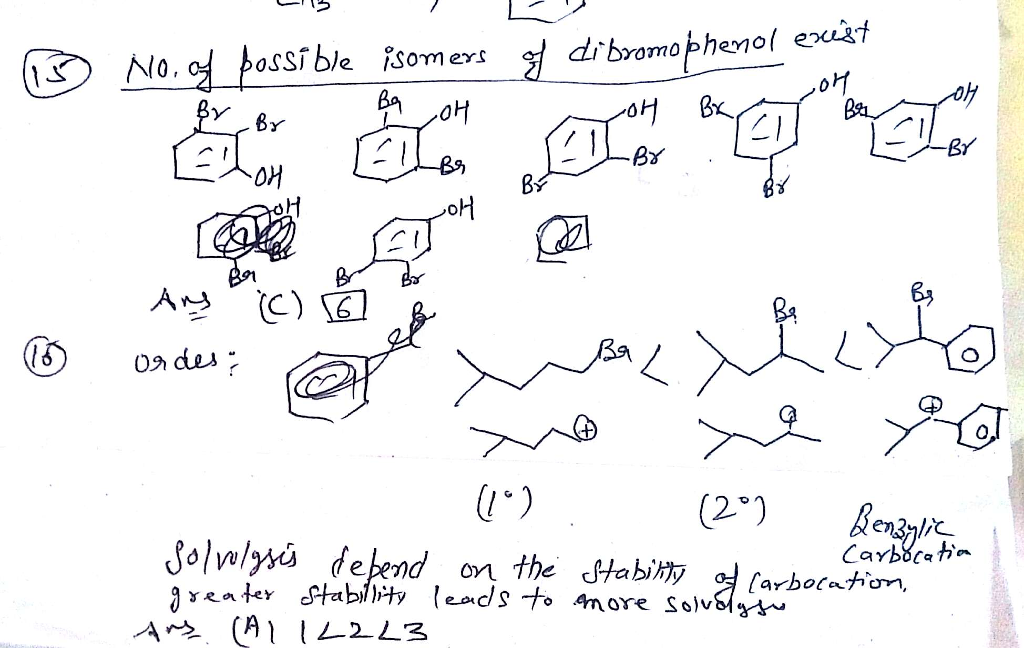 15 No. of possible isomers of dibromophenol exist
Br Br OH
Br OH Br
OH Br Br
Br OH Br
Br OH Br
OH Br
OH Br Br
Ans (C) 6
16 order: Br < Br < Br
(1°) (2°) Benzylic
Carbocatin
Solvolysis depend on the stability of Carbocation,
greater stabillity leads to more solvolysis
Ans (A) 1<2<3